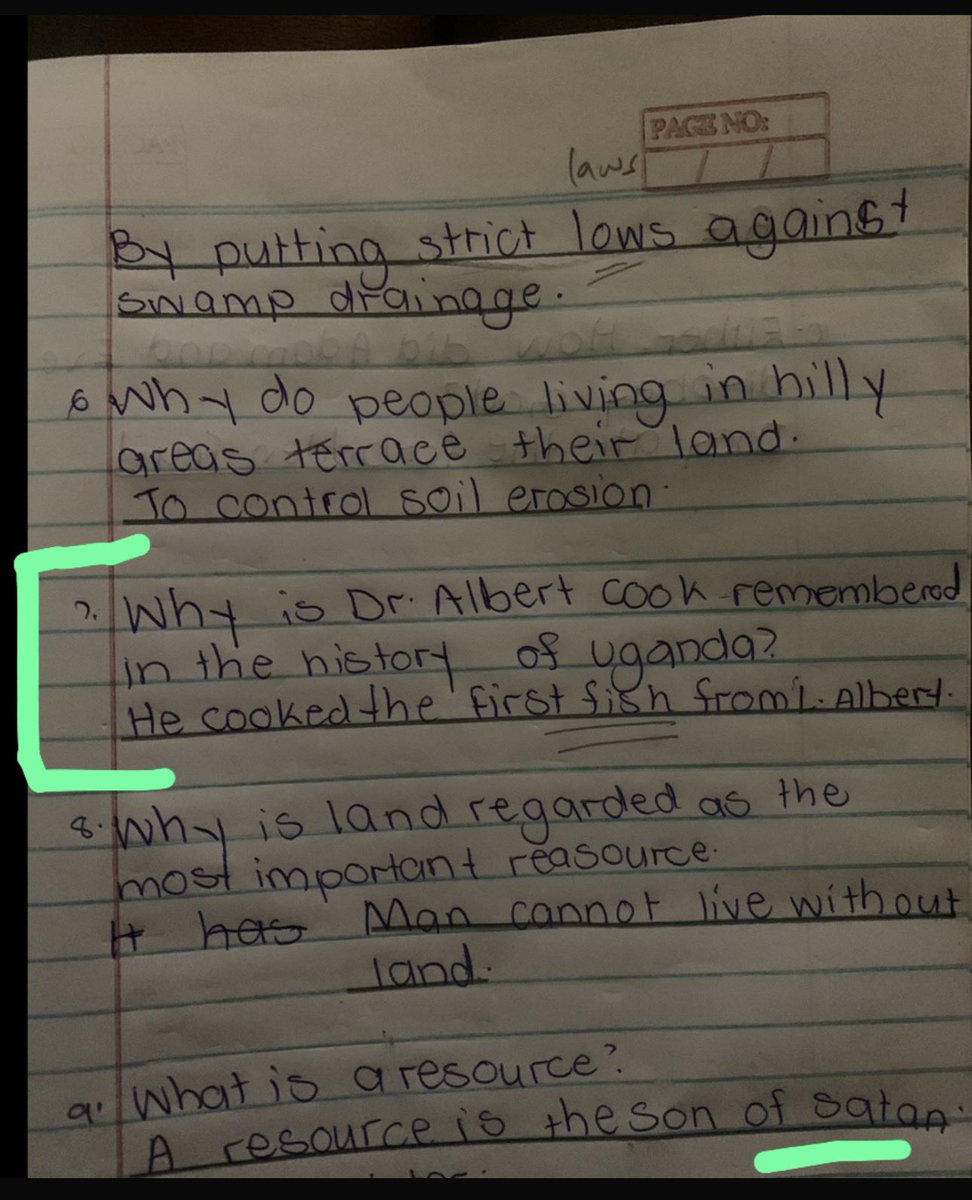 PAGE NO:
laws
By putting strict lows against
swamp drainage.
6 Why do people living in hilly
areas terrace their land.
To control soil erosion.
7. Why is Dr. Albert cook remembered
in the history of uganda?
He cooked the first fish from L. Albert.
8. Why is land regarded as the
most important reasource.
It has Man cannot live without
land.
9. What is a resource?
A resource is the son of satan.